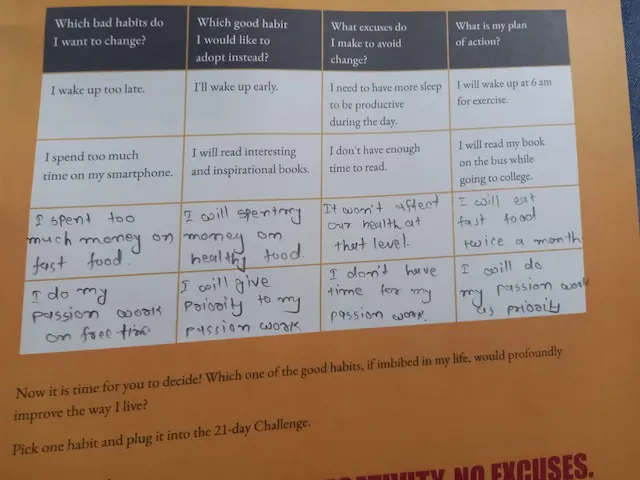 Which bad habits do
I want to change?
Which good habit
I would like to
adopt instead?
What excuses do
I make to avoid
change?
What is my plan
of action?
I wake up too late.
I'll wake up early.
I need to have more sleep
to be productive
during the day.
I will wake up at 6 am
for exercise.
I spend too much
time on my smartphone.
I will read interesting
and inspirational books.
I don't have enough
time to read.
I will read my book
on the bus while
going to college.
I spent too
much money on
fast food.
I will spentmy
money on
healthy food.
It won't affect
our health at
that level.
I will eat
fast food
twice a month
I do my
passion work
on free time
I will give
Priority to my
passion work
I don't have
time for my
passion work.
I will do
my passion work
as priority
Now it is time for you to decide! Which one of the good habits, if imbibed in my life, would profoundly
improve the way I live?
Pick one habit and plug it into the 21-day Challenge.
NO EXCUSES.